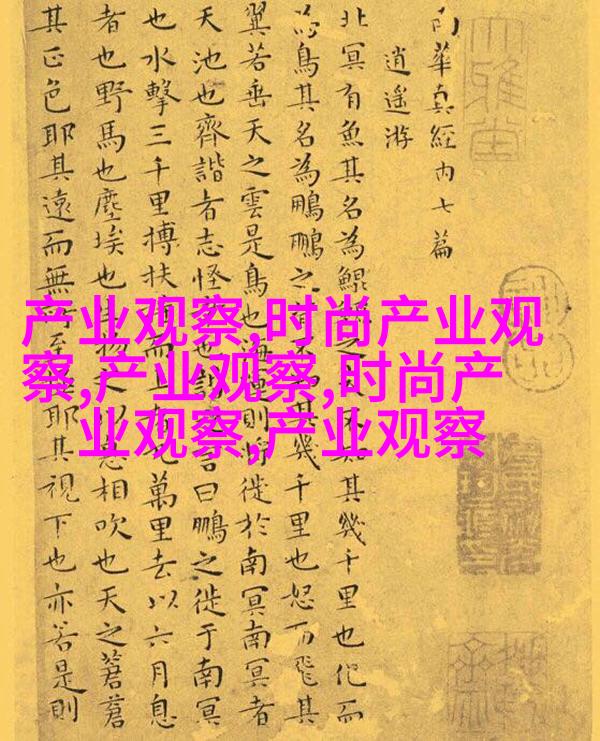 南華真經内七篇
逍遥游
北冥有魚其名為鯤之不知其幾千里也化而
為鳥其名為鵬鵬之背不知其幾千里也怒而飛其
翼若垂天之雲是鳥也海運則將徙於南冥南冥者
天池也齊諧者志怪者也諧之言曰鵬之徙于南冥
也水擊三千里搏扶而上者萬里去以六月息
者也野馬也塵埃也生物之以息相吹也天之蒼蒼
其正色耶其遠而無所至極耶其視下也亦若是則
大雅堂
产业观察,时尚产业观
察,产业观察,时尚产
业观察,产业观察